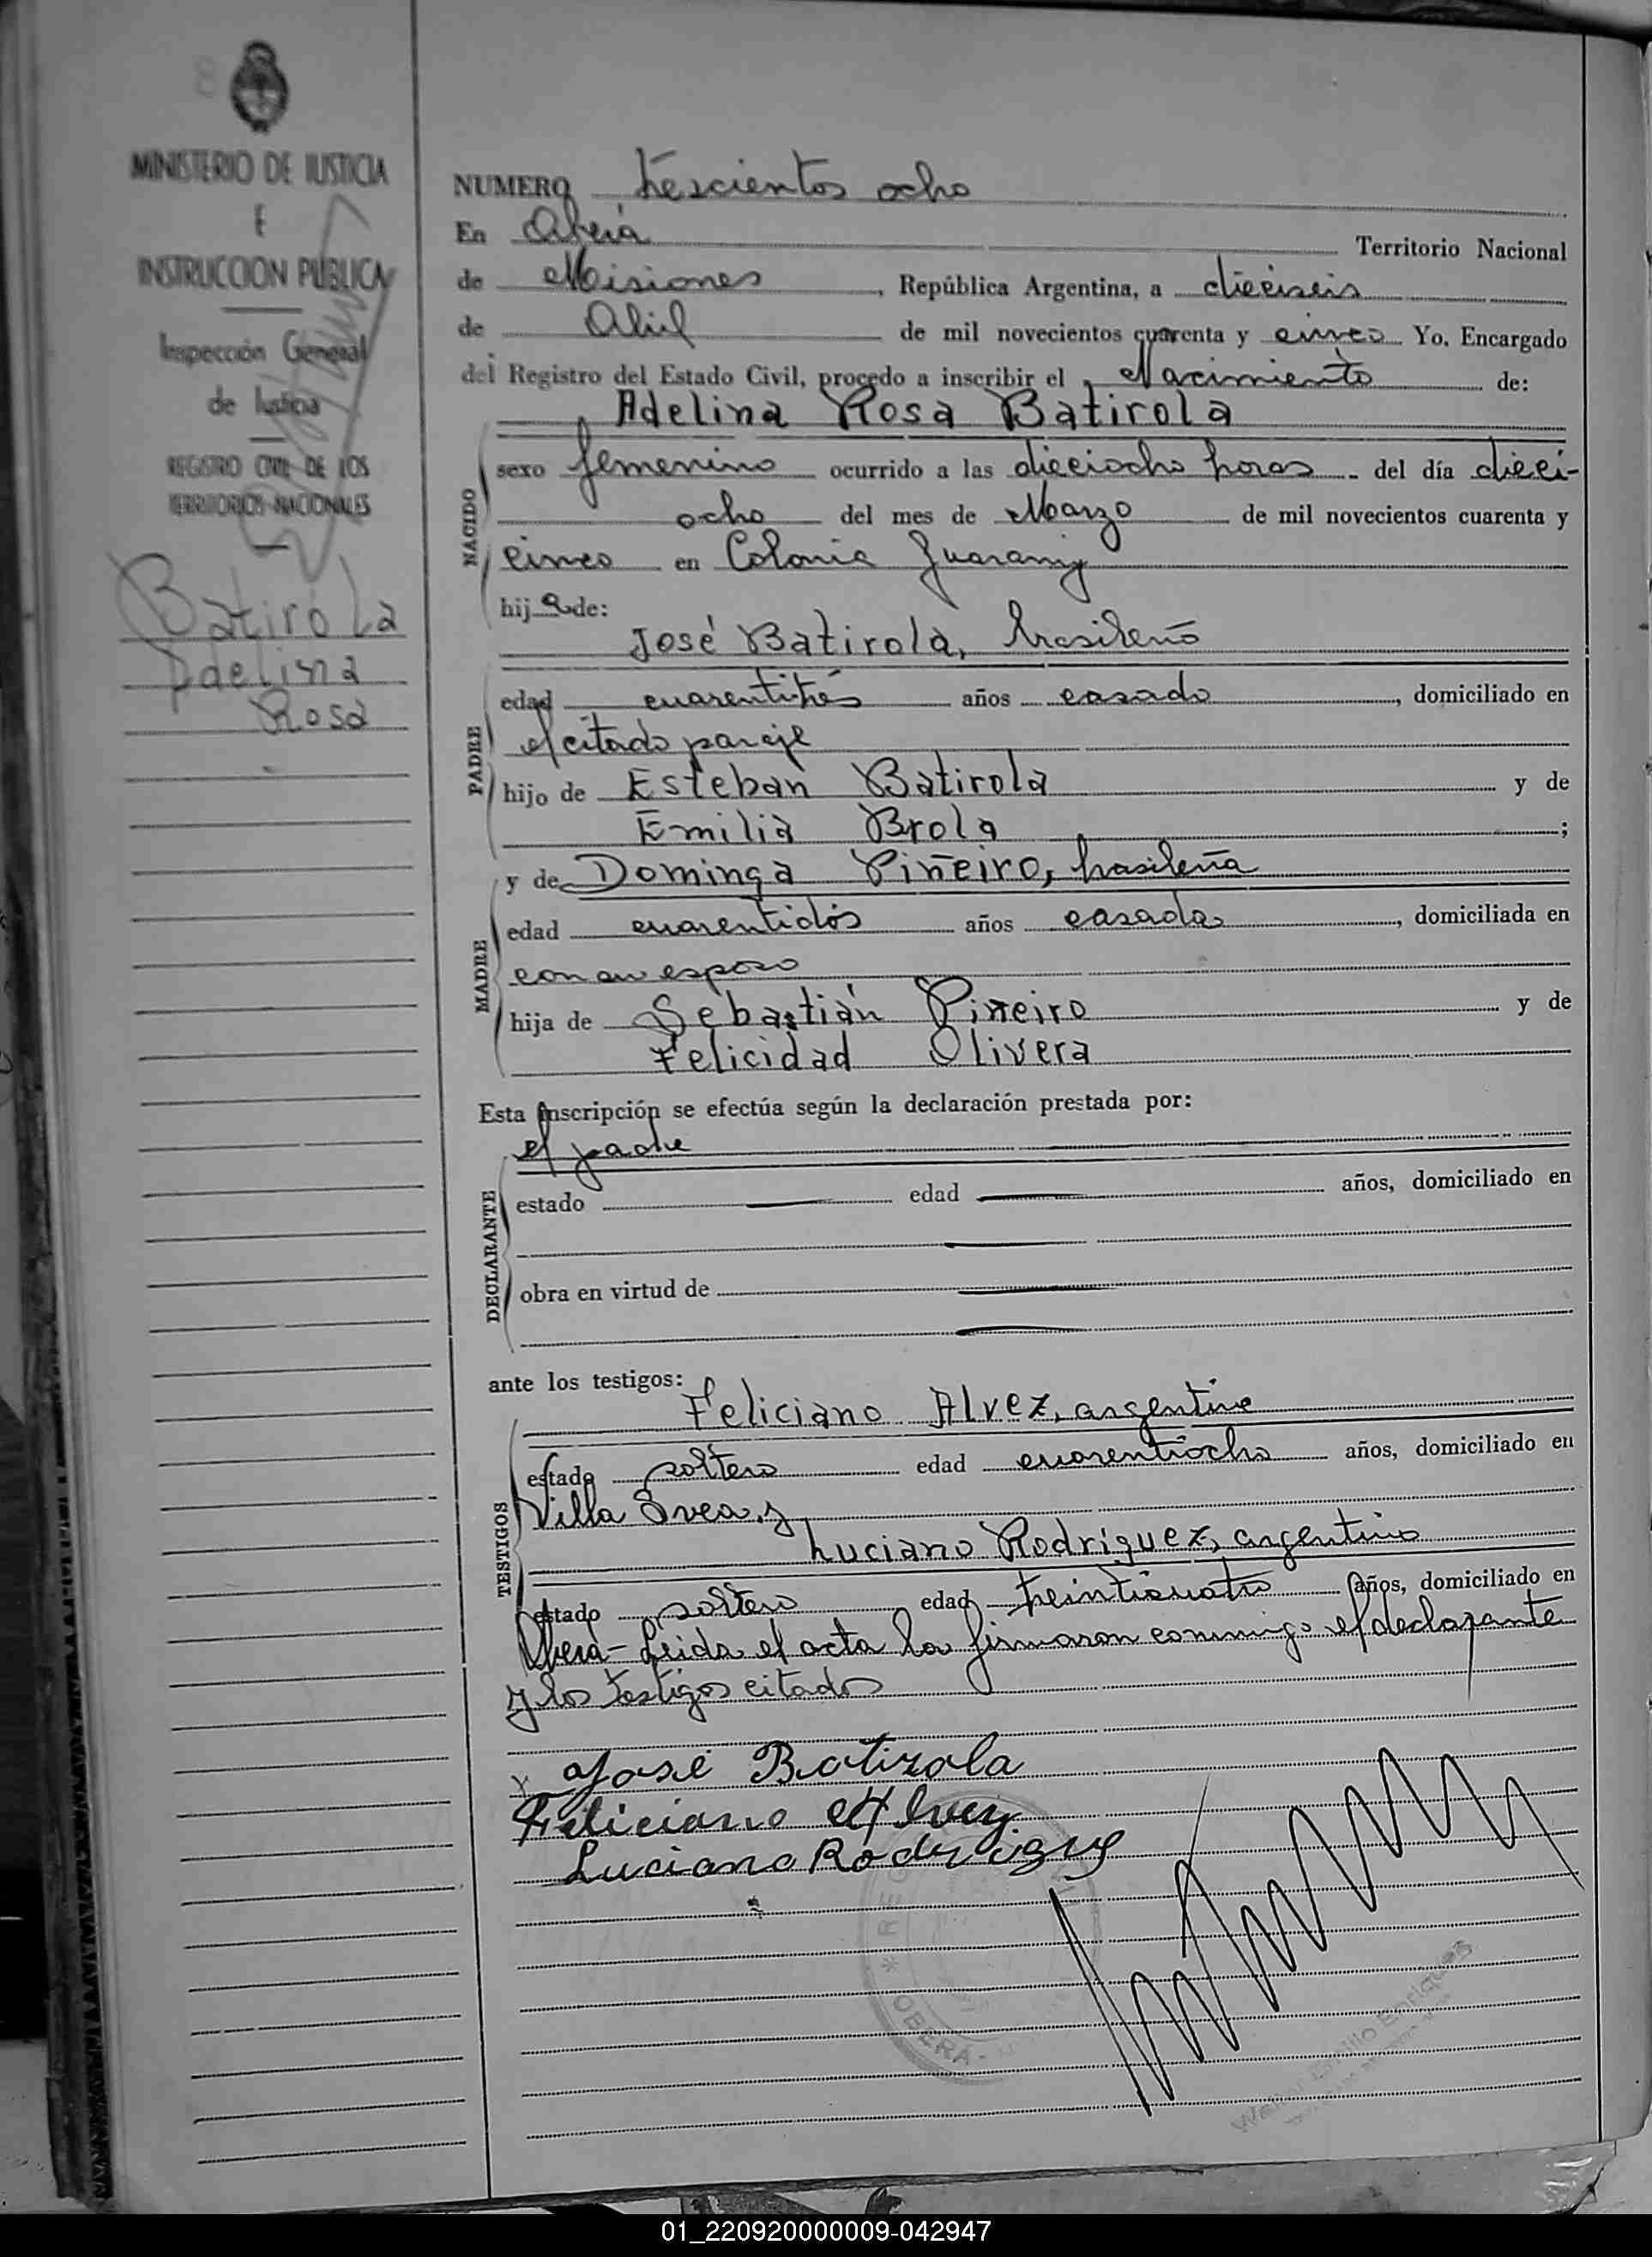 8
MINISTERIO DE JUSTICIA
E
INSTRUCCION PUBLICA
Inspección General
de Justicia
REGISTRO CIVIL DE LOS
TERRITORIOS NACIONALES
Batirola
Adelina
Rosa
NUMERO trescientos ocho
En Oberá Territorio Nacional
de Misiones, República Argentina, a dieciseis
de Abril de mil novecientos cuarenta y cinco Yo, Encargado
del Registro del Estado Civil, procedo a inscribir el Nacimiento de:
Adelina Rosa Batirola
NACIDO
sexo femenino ocurrido a las dieciocho horas del día dieci-
ocho del mes de Marzo de mil novecientos cuarenta y
cinco en Colonia Guarany
hija de:
José Batirola, brasileño
PADRE
edad cuarentitrés años casado, domiciliado en
el citado paraje
hijo de Esteban Batirola y de
Emilia Brola;
y de Dominga Piñeiro, brasileña
MADRE
edad cuarentidós años casada, domiciliada en
con su esposo
hija de Sebastián Piñeiro y de
Felicidad Olivera
Esta inscripción se efectúa según la declaración prestada por:
el padre
DECLARANTE
estado — edad — años, domiciliado en
—
obra en virtud de —
—
ante los testigos:
Feliciano Alvez, argentino
TESTIGOS
estado soltero edad cuarentiocho años, domiciliado en
Villa Svea, y
Luciano Rodriguez, argentino
estado soltero edad treinticuatro años, domiciliado en
Oberá - Leida el acta la firmaron conmigo el declarante
y los testigos citados
x José Batirola
Feliciano Alvez
Luciano Rodriguez
* REG
OBERA -
Emilio Enriquez
01_220920000009-042947